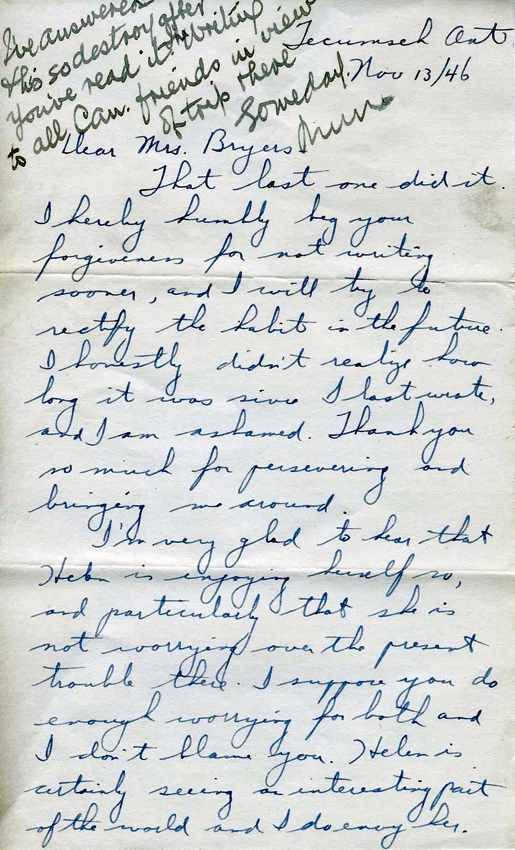 I've answered
this so destroy after
you've read it. Writing
to all Can. friends in view
of trip there
someday.
Mum
Tecumseh Ont.
Nov 13/46
Dear Mrs. Bryers
That last one did it.
I hereby humbly beg your
forgiveness for not writing
sooner, and I will try to
rectify the habit in the future.
I honestly didn't realize how
long it was since I last wrote,
and I am ashamed. Thank you
so much for persevering and
bringing me around.
I'm very glad to hear that
Helen is enjoying herself so,
and particularly that she is
not worrying over the present
trouble there. I suppose you do
enough worrying for both and
I don't blame you. Helen is
certainly seeing an interesting part
of the world and I do envy her.